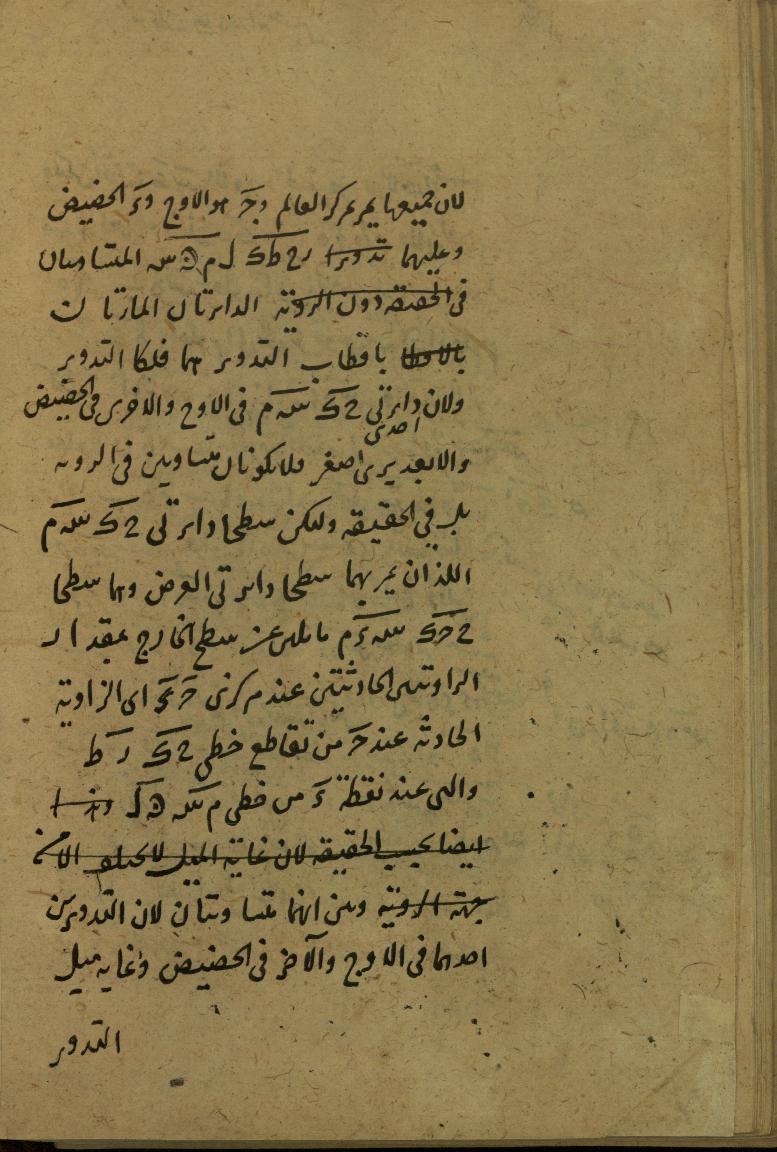 لان جميعها يمر بمركز العالم وجَ هو الاوج وءَ الحضيض
وعليهما تدويرا رح ط ك ل م ن س المتساويان
فى الحقيقة دون الروية الدايرتان المارتان
بالاقطا باقطاب التدوير هما فلكا التدوير
ولان دايرتى ح ك س م احدى فى الاوج والاخرى فى الحضيض
والابعد يرى اصغر فلا يكونان متساويين فى الروية
بل فى الحقيقه وليكن سطحا دايرتى ح ك س م
اللذان يمر بهما سطحا دايرتى العرض وهما سطحا
ح ك س م مايلين عن سطح الخارج بمقدار
الزاويتين الحادثتين عند مركزى اى الزاوية
الحادثه عند من تقاطع خطى ح ك ر ط
والتى عند نقطة ءَ من خطى م س ن ل
ايضا بحسب الحقيقه لان غاية الميل لا يختلف الا من
جهة الروية وبين انهما متساويتان لان التدويرين
احدهما فى الاوج والآخر فى الحضيض وغايه ميل
التدوير